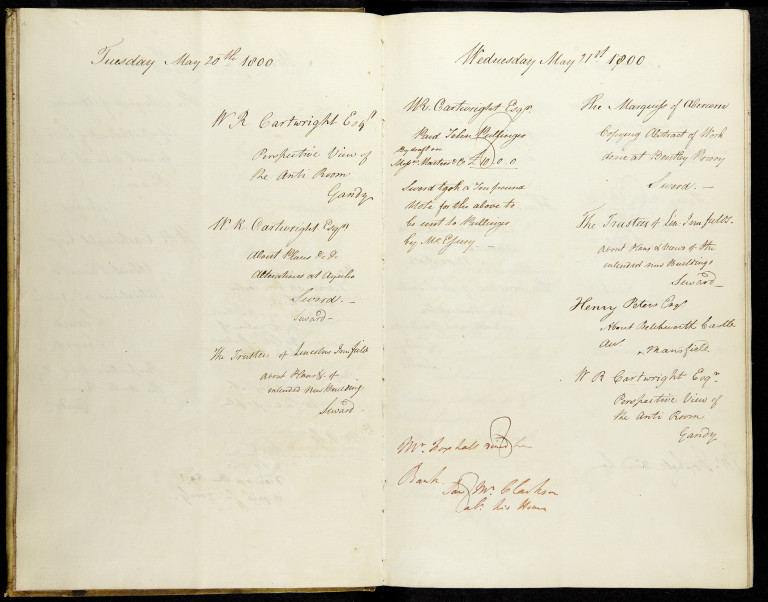 Tuesday May 20th 1800
W R Cartwright Esqr
Perspective View of
the Anti Room
Gandy
W. R. Cartwright Esqr
About Plans &c &c
Alterations at Aynho
Sword. —
Seward —
The Trustees of Lincolns Inn fields
about Plans &c of
intended new Building
Seward
Wednesday May 21st 1800
WR. Cartwright Esqr.
Paid John
By draft on
Messrs & Co £10.0.0
Sword took a Ten pound
Note for the above to
be sent to
by Mr
Mr. Foxhall
Bank
Mr. Clarkson
at his House
The Marquess of Abercorn
Copying Abstract of Work
done at Bentley Priory
Sword. —
The Trustees of Lin: Inn fields.
about Plans & Views of the
intended new Buildings
Seward —
Henry Peters Esqr
About Betchworth Castle
Mansfield.
W R Cartwright Esqr.
Perspective View of
the Anti Room
Gandy